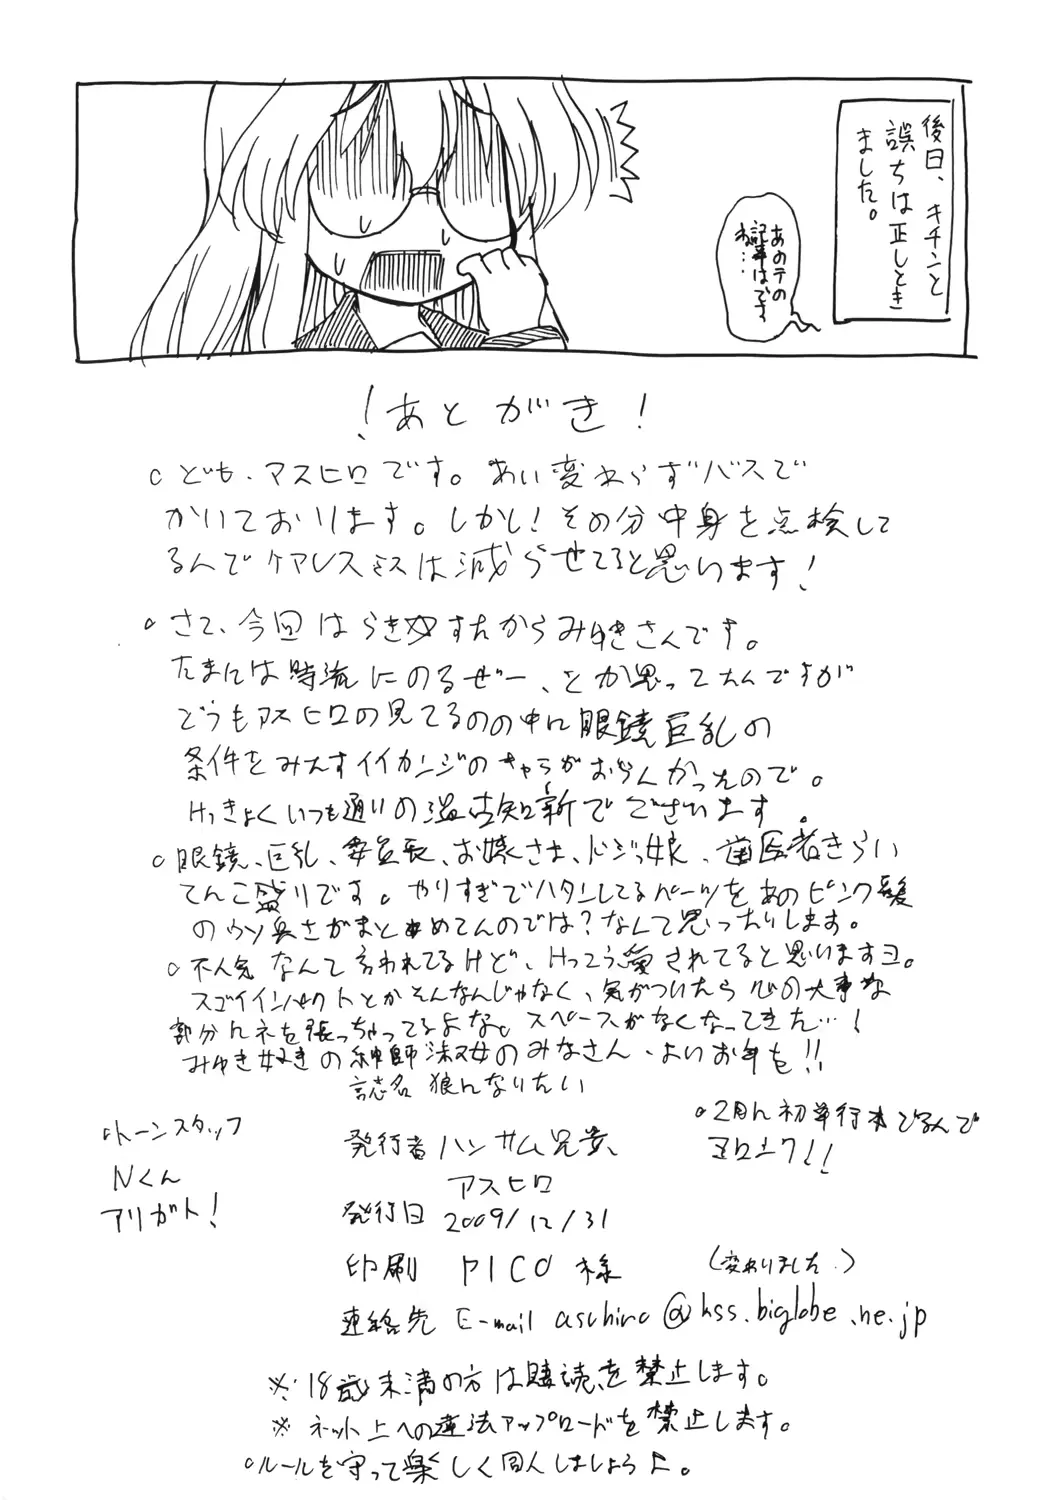 後日、キチンと
誤ちは正しとき
ました。
あのテの
記事はですね…
！あとがき！
○ども、アスヒロです。あい変わらずバスで
かいております。しかし！その分中身を点検して
るんでケアレスミスは減らせてると思います！
○さて、今回はらき☆すたからみゆきさんです。
たまには時流にのるぜー、とか思ってたんですが
どうもアスヒロの見てるのの中に眼鏡巨乳の
条件をみたすイイカンジのキャラがおらんかったので。
けっきょくいつも通りの温古知新でございます。
○眼鏡、巨乳、委員長、お嬢さま、ドジっ娘、歯医者きらい
てんこ盛りです。やりすぎでハタンしてるパーツをあのピンク髪
のウソ臭さがまとめてんのでは？なんて思ったりします。
○不人気なんて言われてるけど、けっこう愛されてると思いますヨ。
スゴイインパクトとかそんなんじゃなく、気がついたら心の大事な
部分にネを張っちゃってるよな。スペースがなくなってきた…！
みゆき好きの紳師淑女のみなさん、よいお年を！！
誌名 狼になりたい
○トーンスタッフ
Nくん
アリガト！
発行者 ハンサム兄貴、
アスヒロ
○2月に初単行本でるんで
ヨロシク！！
発行日 2009/12/31
印刷 PICO様
（変わりました。）
連絡先 E-mail asuhiro@kss.biglobe.ne.jp
※18歳未満の方は購読を禁止します。
※ネット上への違法アップロードを禁止します。
○ルールを守って楽しく同人しましょうよ。